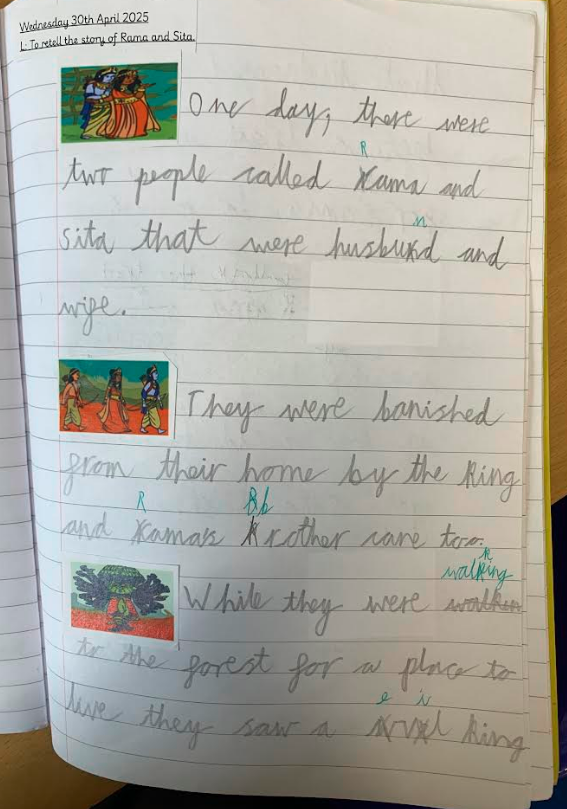 Wednesday 30th April 2025
L: To retell the story of Rama and Sita.
One day, there were
R
two people called Rama and
n
sita that were husbund and
wife.
They were banished
from their home by the King
R Bb
and Ramas Brother came too.
walking
While they were walkin
to the forest for a place to
e i
live they saw a evil king